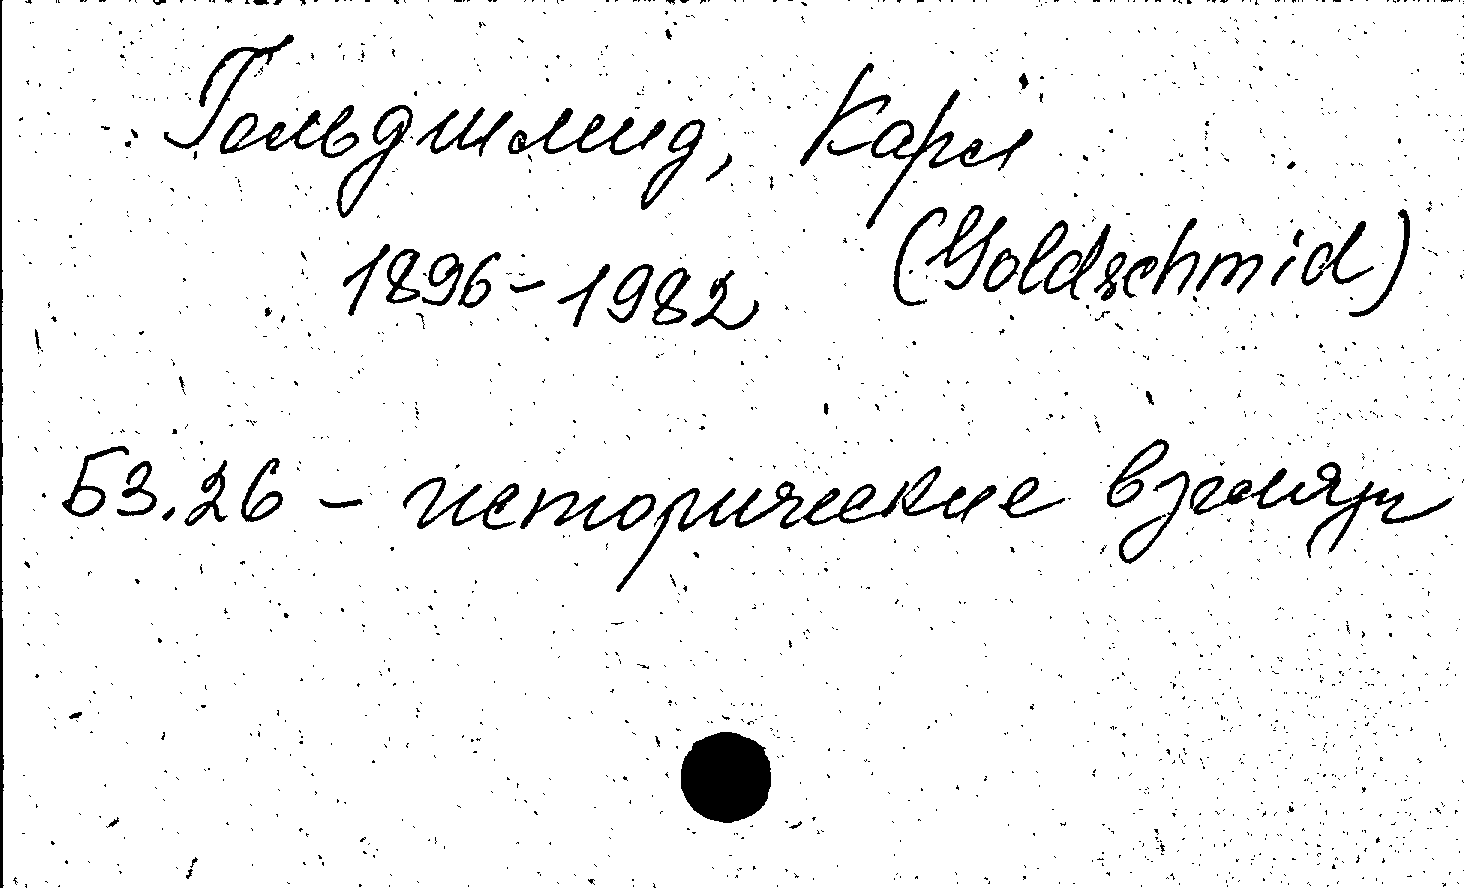 Гольдшмид, Карл
(Goldschmid)
1896-1982
Б3.26 - исторические взгляды